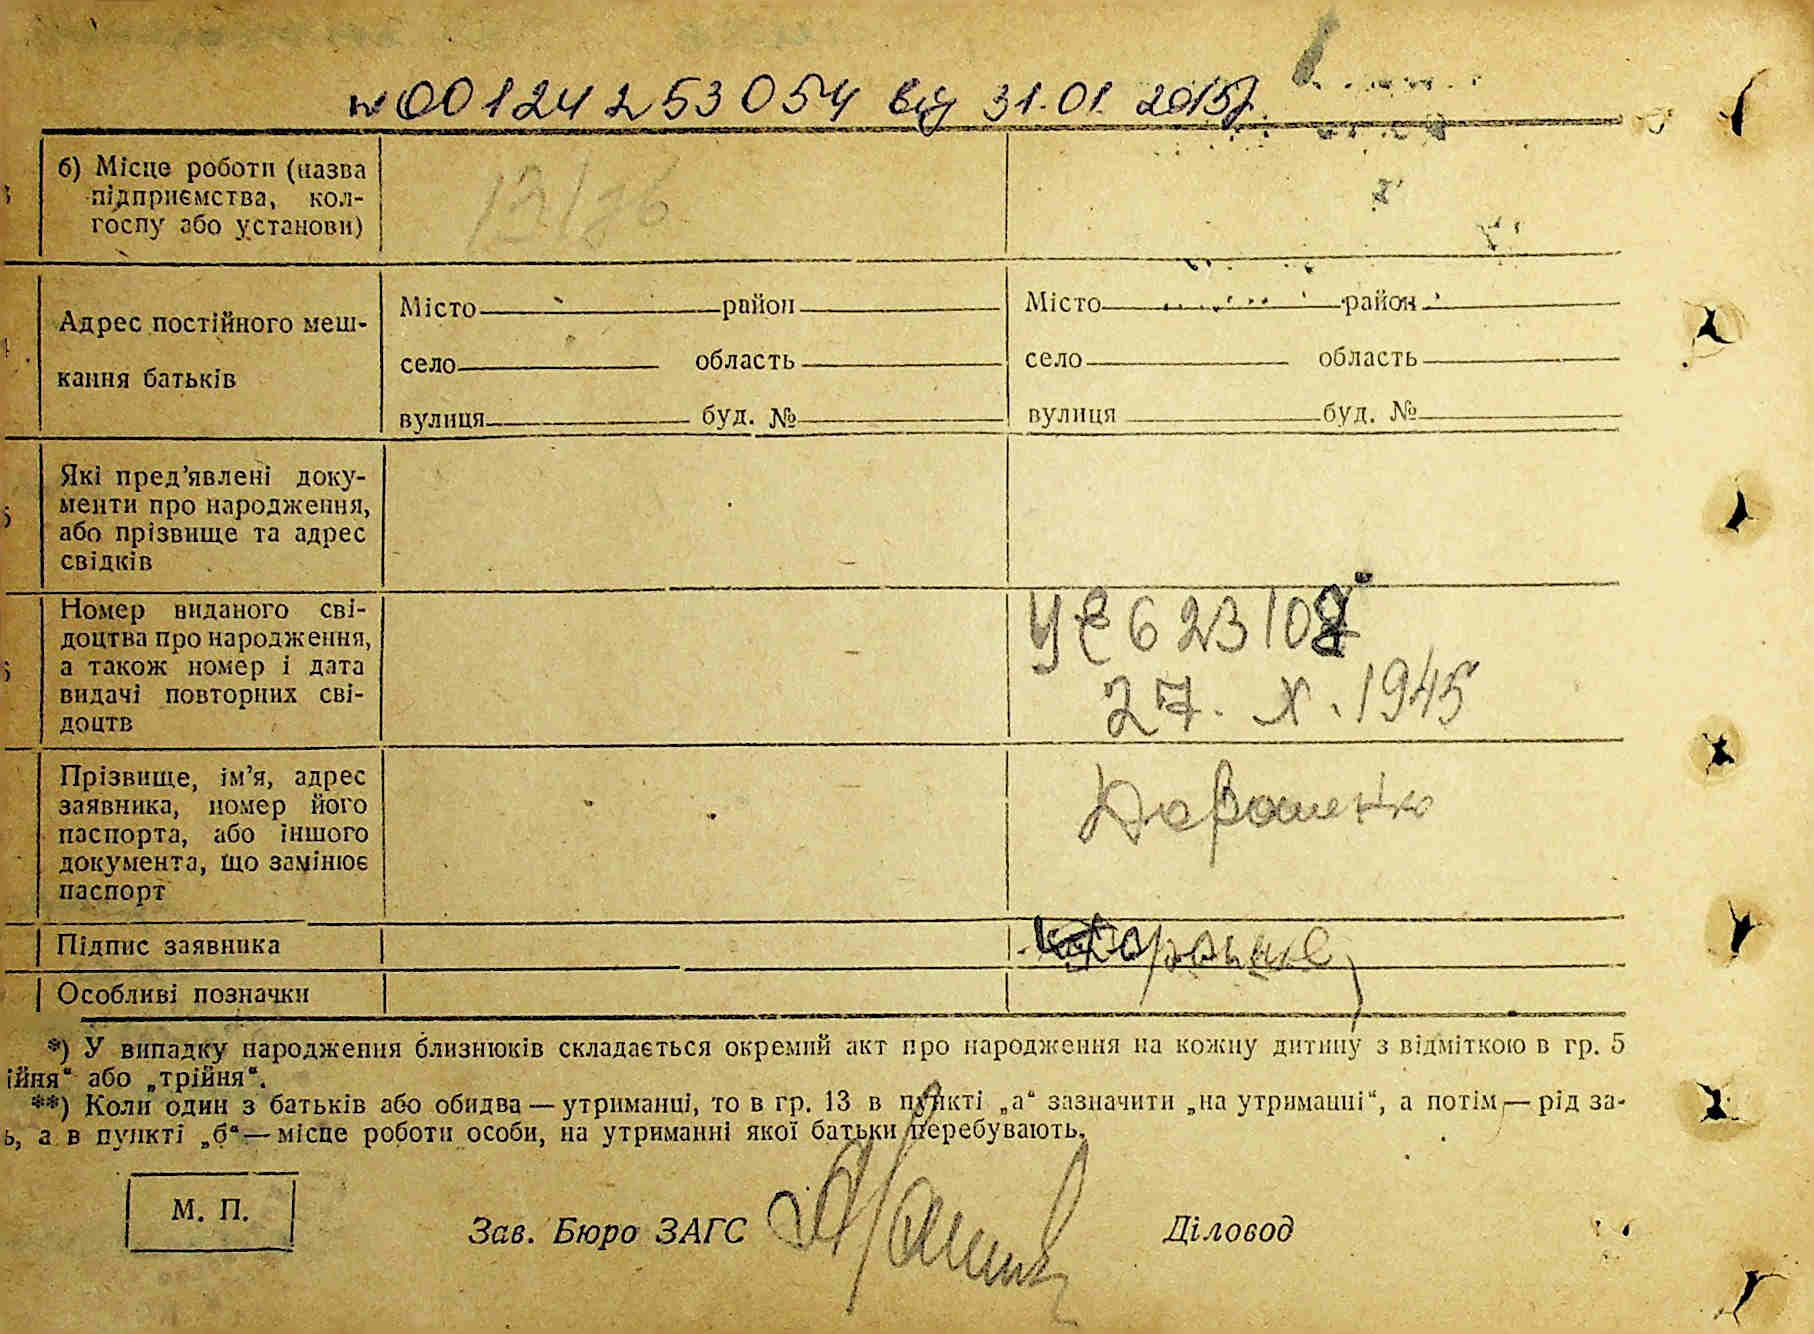 № 00124253054 від 31.01.2015р.
б) Місце роботи (назва
підприємства, кол-
госпу або установи)
Адрес постійного меш-
кання батьків
Місто район
село область
вулиця буд. №
Місто район
село область
вулиця буд. №
Які пред’явлені доку-
менти про народження,
або прізвище та адрес
свідків
Номер виданого сві-
доцтва про народження,
а також номер і дата
видачі повторних сві-
доцтв
УЕ 623108
27. X. 1945
Прізвище, ім’я, адрес
заявника, номер його
паспорта, або іншого
документа, що замінює
паспорт
Дорошенко
Підпис заявника
Особливі позначки
*) У випадку народження близнюків складається окремий акт про народження на кожну дитину з відміткою в гр. 5
ійня“ або „трійня“.
**) Коли один з батьків або обидва — утриманці, то в гр. 13 в пункті „а“ зазначити „на утриманні“, а потім — рід за-
ь, а в пункті „б“ — місце роботи особи, на утриманні якої батьки перебувають.
М. П.
Зав. Бюро ЗАГС
Діловод